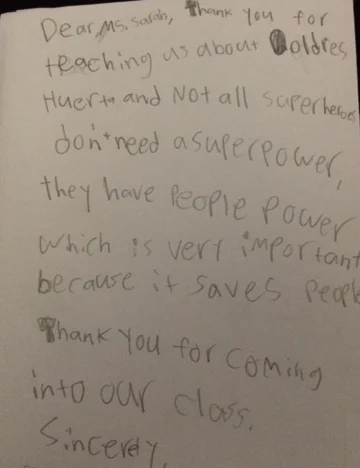 Dear, Ms. Sarah, Thank you for
teaching us about Doldres
Huerta and Not all superheroes
don't need a superpower,
they have People Power
which is very important
because it saves People
Thank You for coming
into our class.
Sincerely,